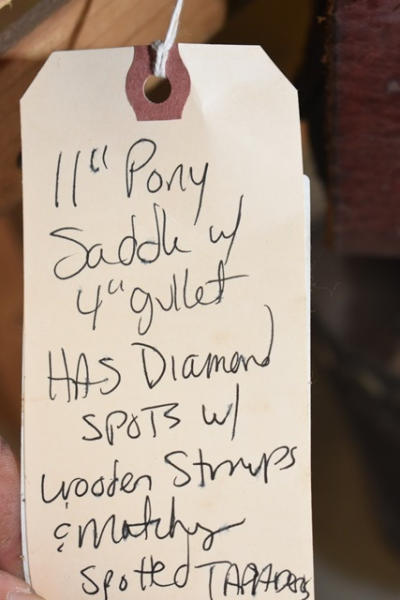 11" Pony
Saddle w/
4" gullet
HAS Diamond
SPOTS w/
wooden Stirrups
& Matching
Spotted TAPADEROS